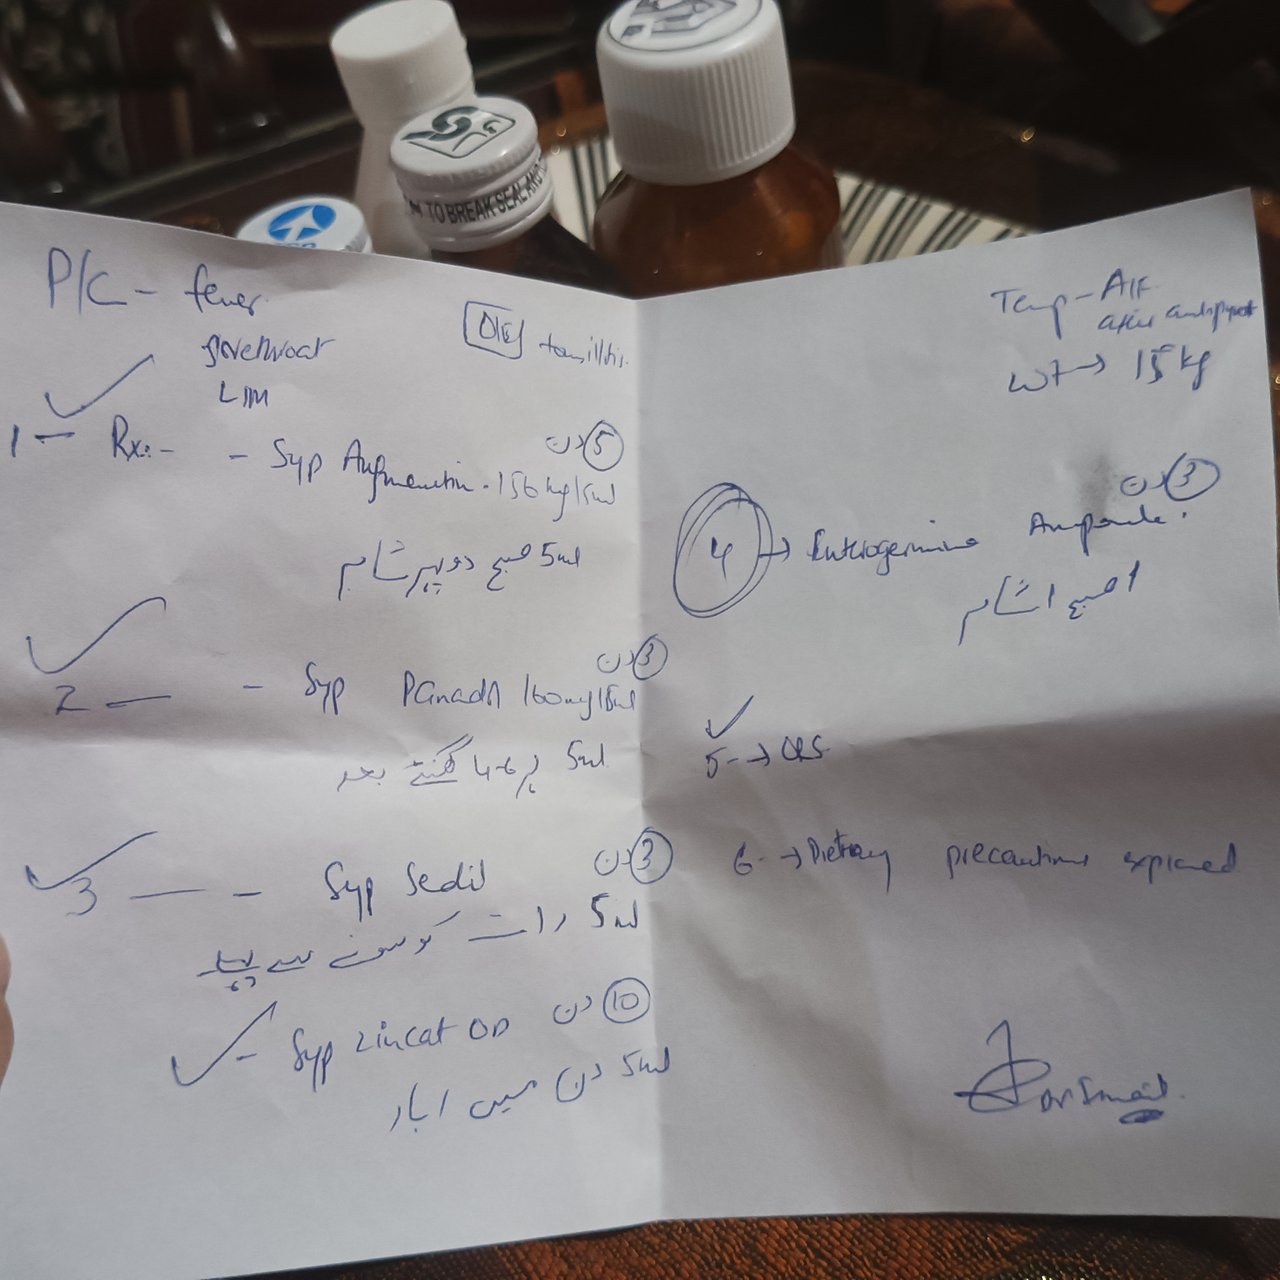 TO BREAK SEAL AND
P/C - fever
sorethroat
LIM
O/E tonsillitis.
1 — Rx:- - Syp Augmentin. 156mg/5ml
5 دن
5ml صبح دوپہر شام
2 — - Syp Panadol 160mg/5ml
3 دن
5ml ہر 4-6 گھنٹے بعد
3 — - Syp Sedil
3 دن
5ml رات کو سونے سے پہلے
- Syp Zincat OD
10 دن
5ml دن میں 1 بار
Temp - A/F
after antipyret
Wt → 15kg
3 دن
4 → Enterogermina Ampoule.
1 صبح 1 شام
5 → ORS
6 → Dietary precautions explained